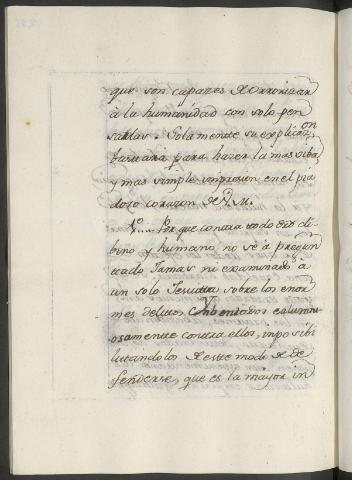 que son capazes de orrorizar
à la humanidad con solo pen
sarlas. Solamentte su explicaz.on
bastara para hazer la mas viba,
y mas simple impresion en el pia
doso corazon de V. M.
1º.... Porque contra todo dro di
bino y humano no se à pregun
tado Jamas ni examinado à
un solo Jesuita sobre los enor
mes delitos Ynbentados calumni
osamentte contra ellos, imposibi
litandolos de este modo de de
fenderse, que es la mayor in